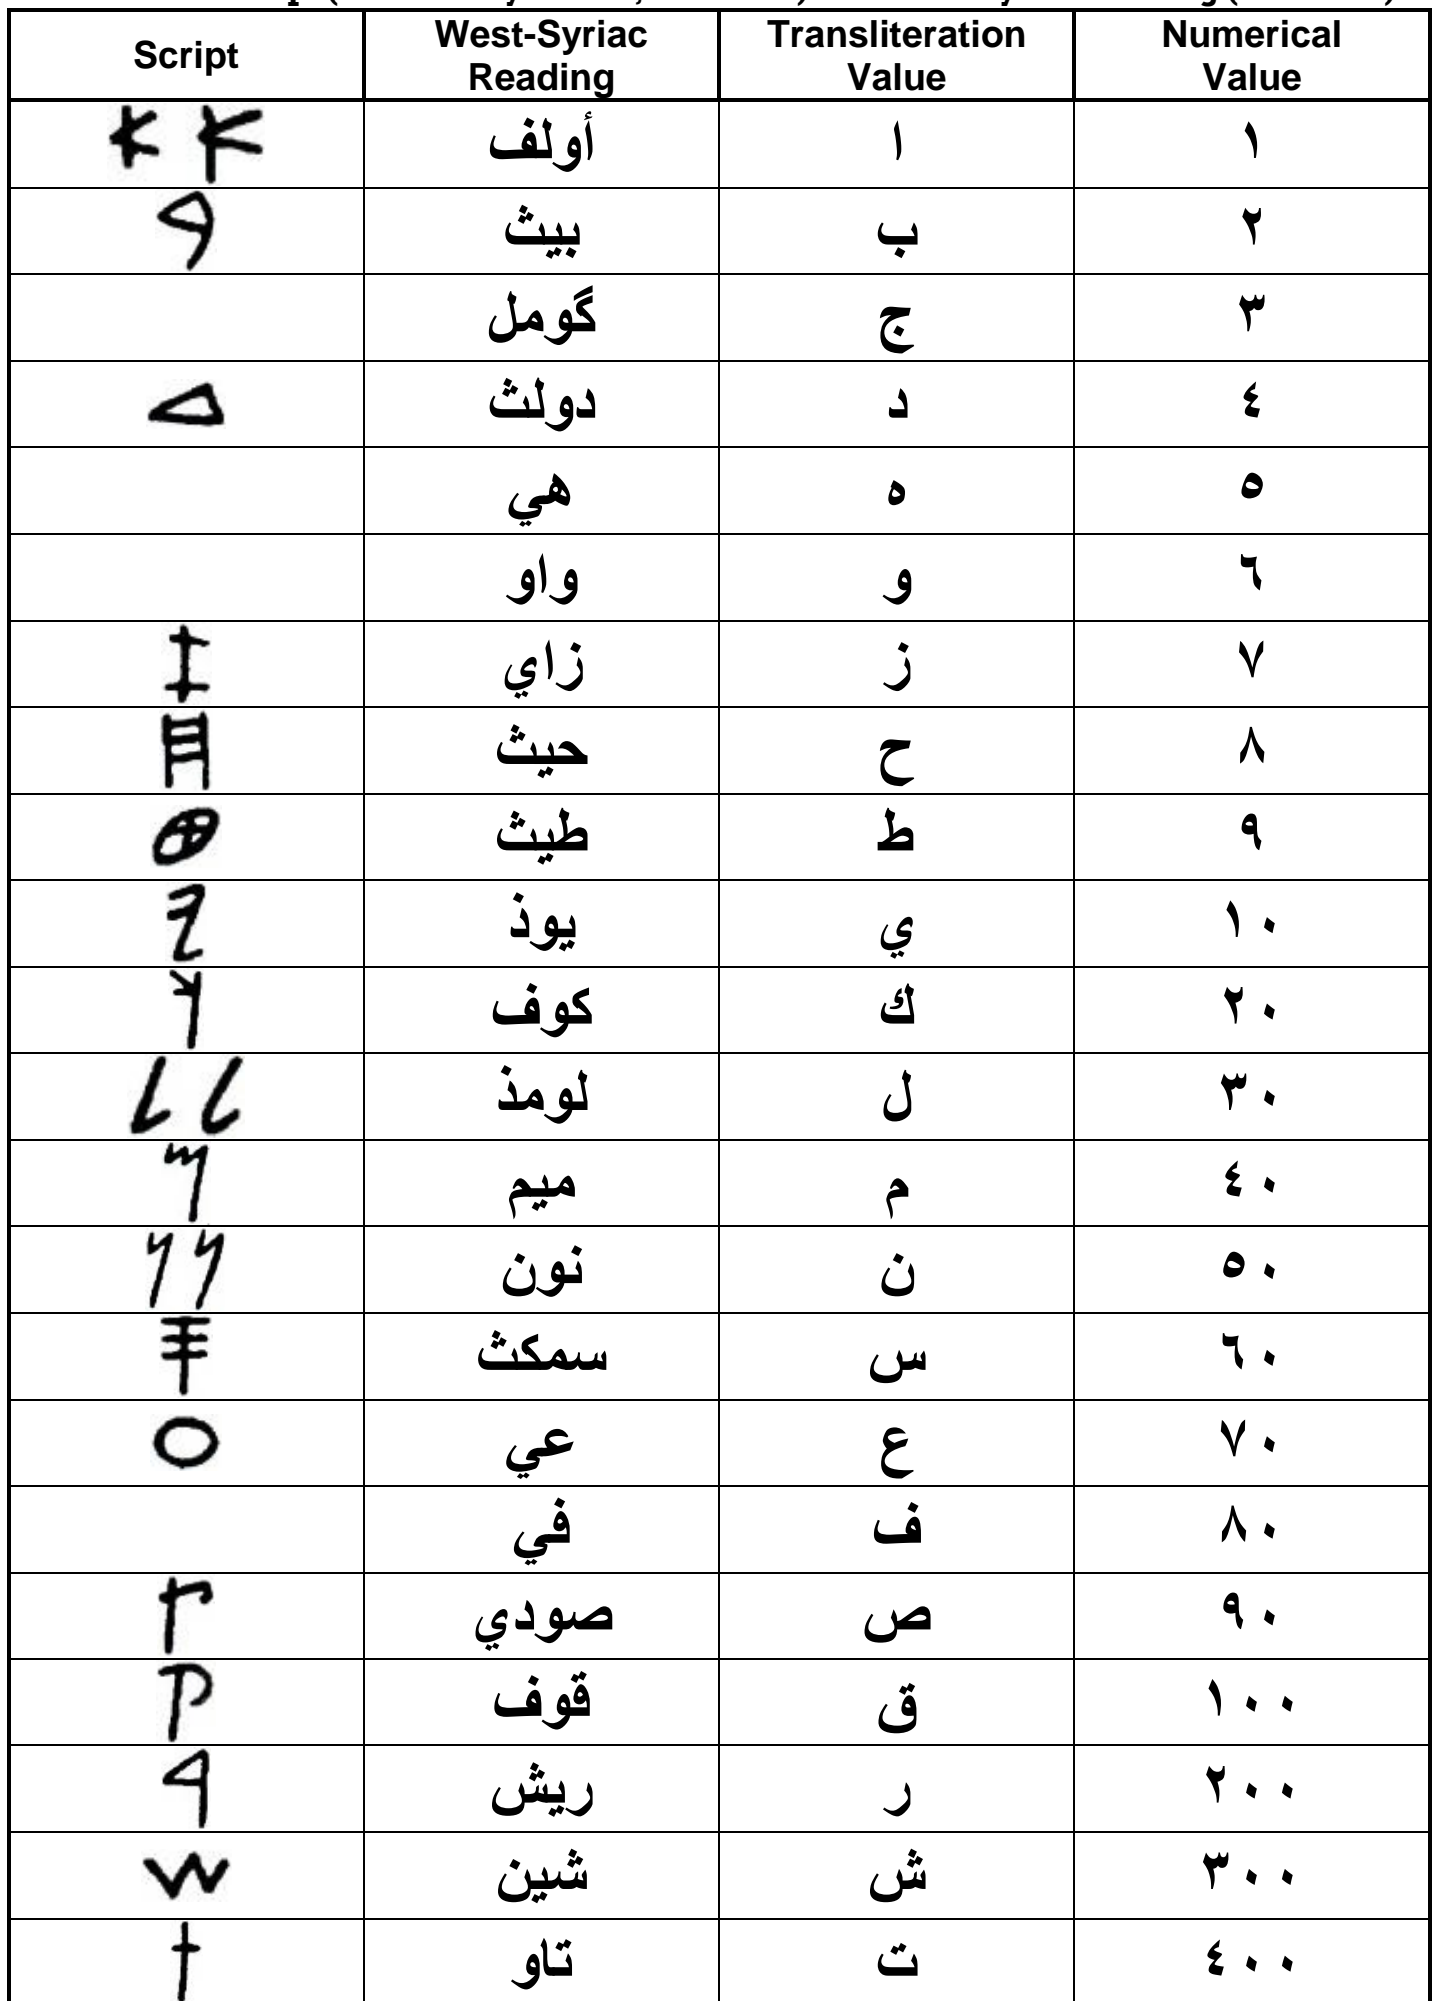 Script West-Syriac Reading Transliteration Value Numerical Value
𐤀 𐤀 أولف ا ١
𐤁 بيث ب ٢
گومل ج ٣
𐤃 دولث د ٤
هي ه ٥
واو و ٦
𐤆 زاي ز ٧
𐤇 حيث ح ٨
𐤈 طيث ط ٩
𐤉 يوذ ي ١٠
𐤊 كوف ك ٢٠
𐤋 𐤋 لومذ ل ٣٠
𐤌 ميم م ٤٠
𐤍 𐤍 نون ن ٥٠
𐤎 سمكث س ٦٠
𐤏 عي ع ٧٠
في ف ٨٠
𐤑 صودي ص ٩٠
𐤒 قوف ق ١٠٠
𐤓 ريش ر ٢٠٠
𐤔 شين ش ٣٠٠
𐤕 تاو ت ٤٠٠